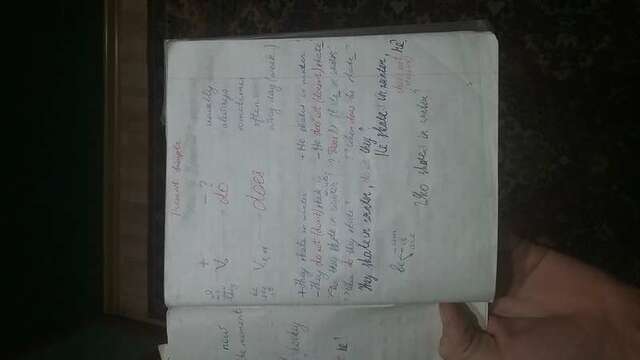 Present Simple
+ - ?
I
we
they
V
do
usually
always
sometimes
he
she
it
Vs, es
does
often
every day (week..)
now
the moment
+ They skate in winter
- They do not (don't) skate in winter
? Do they skate in winter
? When do they skate
They skate in winter, do they?
+ He skates in winter
- He does not (doesn't) skate
? Does he skate in winter
? When does he skate
He skates in winter,
does not
(doesn't)
he?
be
am
is
are
Who skates in winter?
he?